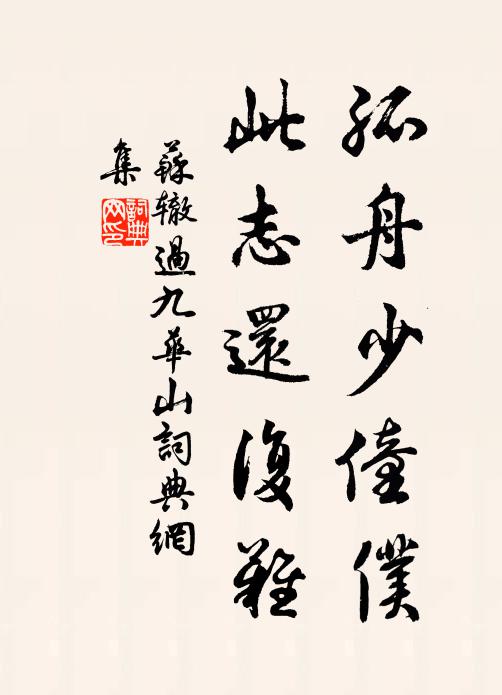 孤舟少僮僕
此志還復難
蘇辙過九華山詞典網
集
詞典网印